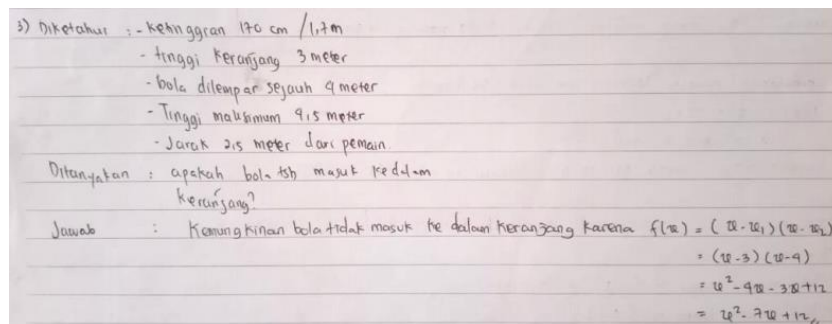 3) Diketahui : - Ketinggian 170 cm / 1,7 m
- tinggi keranjang 3 meter
- bola dilempar sejauh 4 meter
- Tinggi maksimum 4,5 meter
- Jarak 2,5 meter dari pemain.
Ditanyakan : apakah bola tsb masuk kedalam
keranjang?
Jawab : Kemungkinan bola tidak masuk ke dalam keranjang karena f(x) = (x - x₁) (x - x₂)
= (x - 3) (x - 4)
= x² - 4x - 3x + 12
= x² - 7x + 12 //